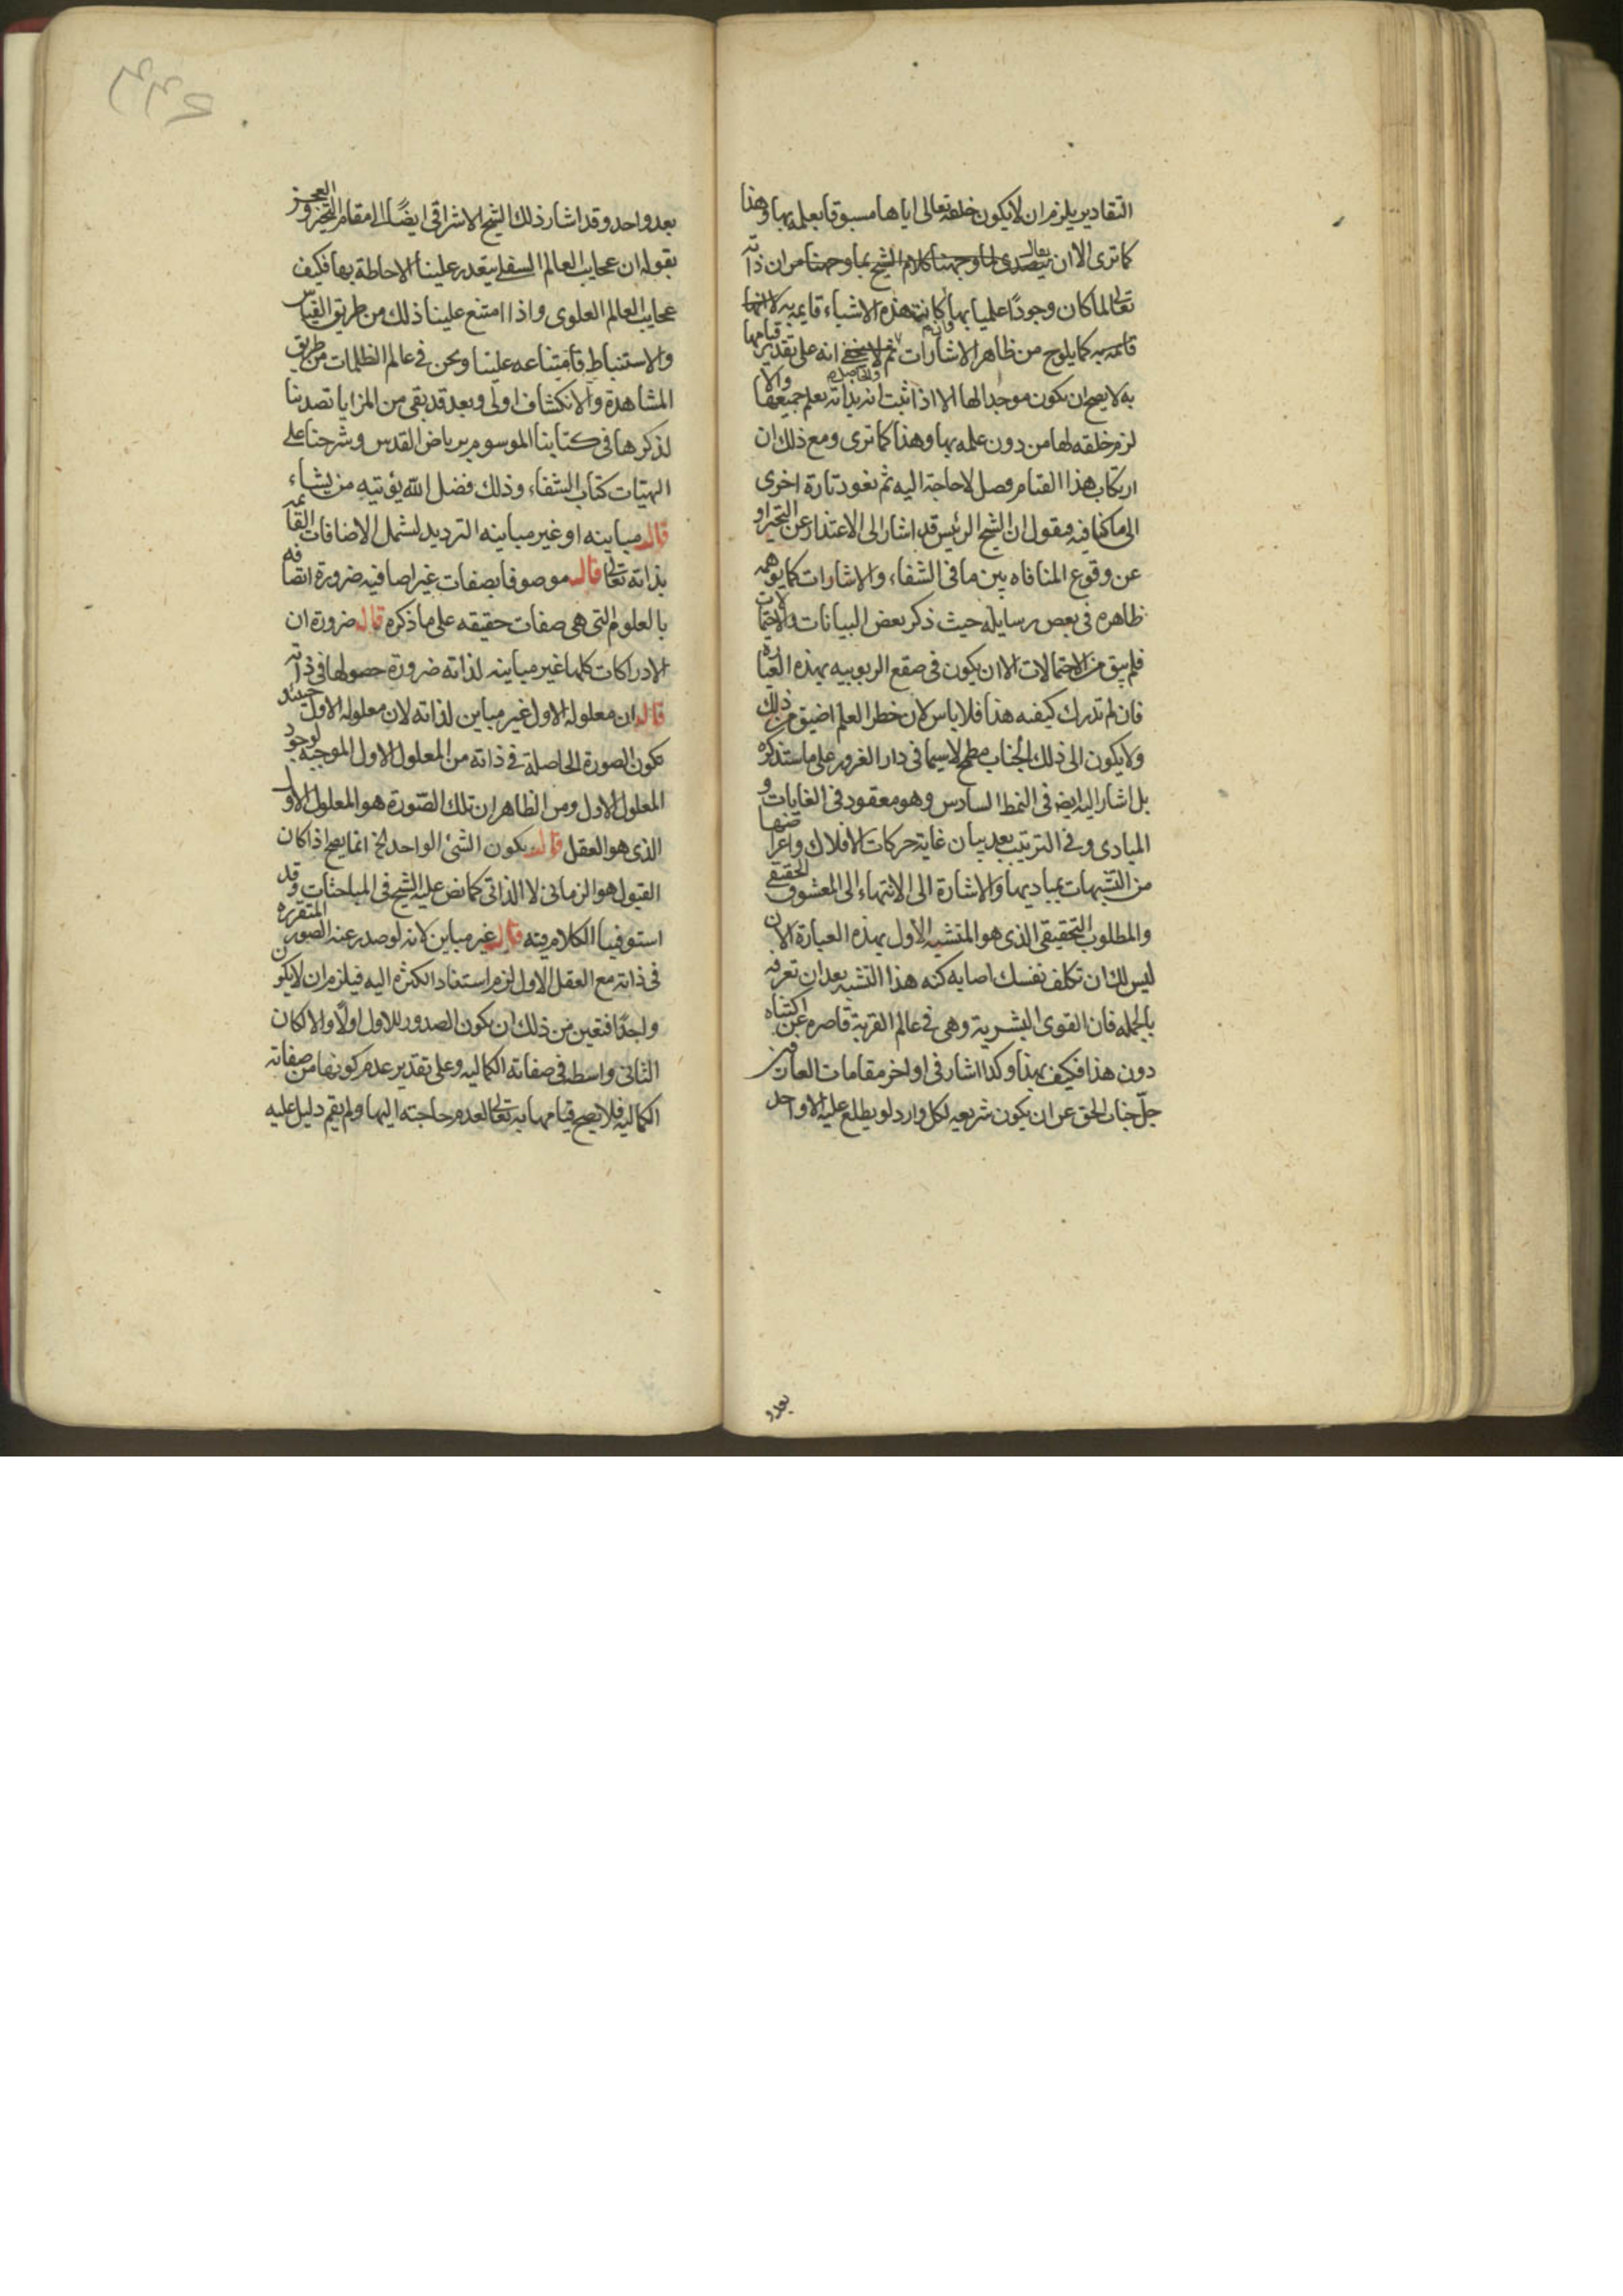 التقادير يلزم ان لا يكون خلقه تعالى اياها مسبوقا بعلمه بها وهذا
كما ترى الا ان يتصدى لما وجهنا كلام الشيخ بما وجهنا من ان ذاته
تعالى لما كان وجودا علميا بها كانت هذه الاشياء قايمه به لا انها
قائمه به كما يلوح من ظاهر الاشارات ثم لا يخفى انه على تقدير قيامها
به لا يصح ان يكون موجدا لها الا اذا ثبت انه بذاته يعلم جميعها والا
لزم خلقه لها من دون علمه بها وهذا كما ترى ومع ذلك ان
ارتكاب هذا القيام وصل لا حاجة اليه ثم نعود تارة اخرى
الى ما كنا فيه ونقول ان الشيخ الرئيس قد اشار الى الاعتذار عن التحير او
عن وقوع المنافاه بين ما فى الشفاء والاشارات كما يوهمه
ظاهره فى بعض رسايله حيث ذكر بعض البيانات والاحتمالات
فلم يبق من الاحتمالات الا ان يكون فى صقع الربوبيه بهذه العبارة
فان لم تدرك كيفيه هذا فلا باس لان خطر العلم اضيق من ذلك
ولا يكون الى ذلك الجناب مطمح لا سيما فى دار الغرور على ما ستذكره
بل اشار اليه ايض فى النمط السادس وهو معقود فى الغايات و
المبادى وفى الترتيب بعد بيان غاية حركات الافلاك واعراضها
من التشبهات بمباديها والاشارة الى الانتهاء الى المعشوق الحقيقى
والمطلوب التحقيقى الذى هو المتشبه الاول بهذه العبارة الان
ليس لك ان تكلف نفسك اصابه كنه هذا التشبه بعد ان تعرفه
بالجمله فان القوى البشرية وهى فى عالم الغربة قاصره عن اكتناه
دون هذا فكيف بهذا وكذا اشار فى اواخر مقامات العارفين
جل جناب الحق عن ان يكون شريعه لكل وارد لو يطلع عليه الا واحد
بعد و
بعد واحد وقد اشار ذلك الشيخ الاشراقى ايضا الى مقام التحير والعجز
بقوله ان عجايب العالم السفلى يتعذر علينا الاحاطة بها فكيف
عجايب العالم العلوى واذا امتنع علينا ذلك من طريق القياس
والاستنباط فامتناعه علينا ونحن فى عالم الظلمات من طريق
المشاهدة والانكشاف اولى وبعد قد بقى من المزايا تصدينا
لذكرها فى كتابنا الموسوم برياض القدس وشرحنا على
الهيات كتاب الشفاء وذلك فضل الله يؤتيه من يشاء
قال مباينه او غير مباينه الترديد لشمل الاضافات القائمة
بذاته تعالى قال موصوفا بصفات غير اضافيه ضرورة اتصافه
بالعلوم التى هى صفات حقيقه على ما ذكره قال ضرورة ان
الادراكات كلها غير مباينه لذاته ضرورة حصولها فى ذاته
قال ان معلوله الاول غير مباين لذاته لان معلوله الاول حينئذ
يكون الصورة الحاصلة فى ذاته من المعلول الاول الموجبة لوجود
المعلول الاول ومن الظاهر ان تلك الصورة هو المعلول الاول
الذى هو العقل قال يكون الشئ الواحد الخ انما يصح اذا كان
القبول هو الزمانى لا الذاتى كما نص عليه الشيخ فى المباحثات وقد
استوفينا الكلام فيه قال غير مباين لانه لو صدر عنه الصور المتقرره
فى ذاته مع العقل الاول لزم استناد الكثره اليه فيلزم ان لا يكون
واحدا فتعين من ذلك ان يكون الصدور للاول اولا والا لكان
الثانى واسطه فى صفاته الكماليه وعلى تقدير عدم كونها من صفاته
الكماليه فلا يصح قيامها به تعالى لعدم حاجته اليها ولم يقم دليل عليه